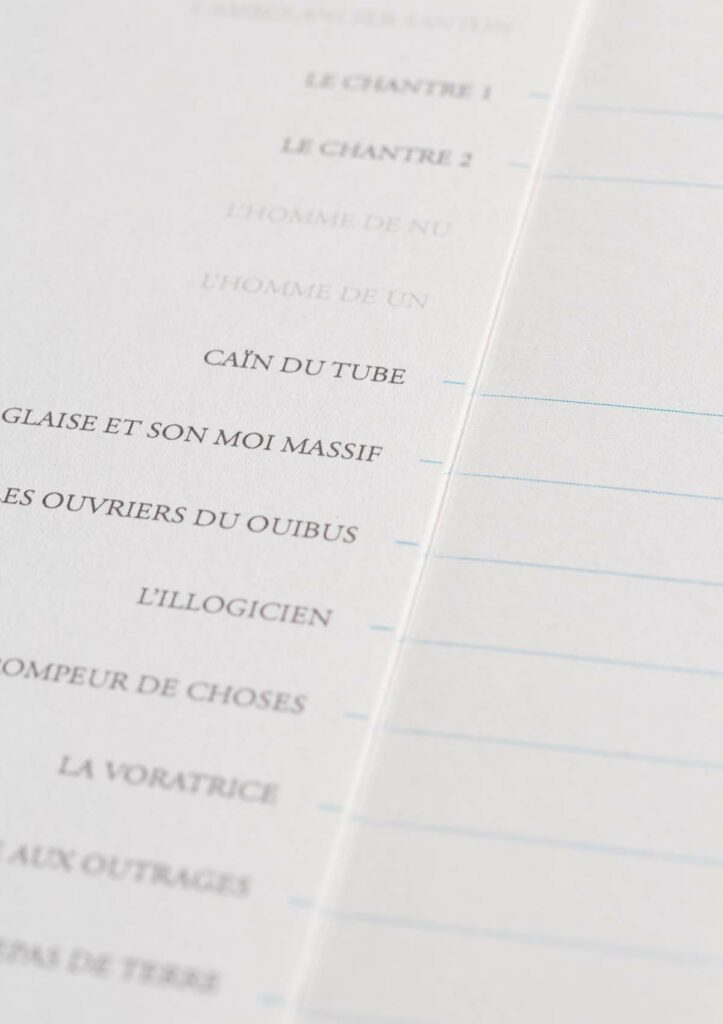 LE CHANTRE 1
LE CHANTRE 2
L'HOMME DE NU
L'HOMME DE UN
CAÏN DU TUBE
GLAISE ET SON MOI MASSIF
LES OUVRIERS DU OUIBUS
L'ILLOGICIEN
DE CHOSES
LA VORATRICE
AUX OUTRAGES
DE TERRE